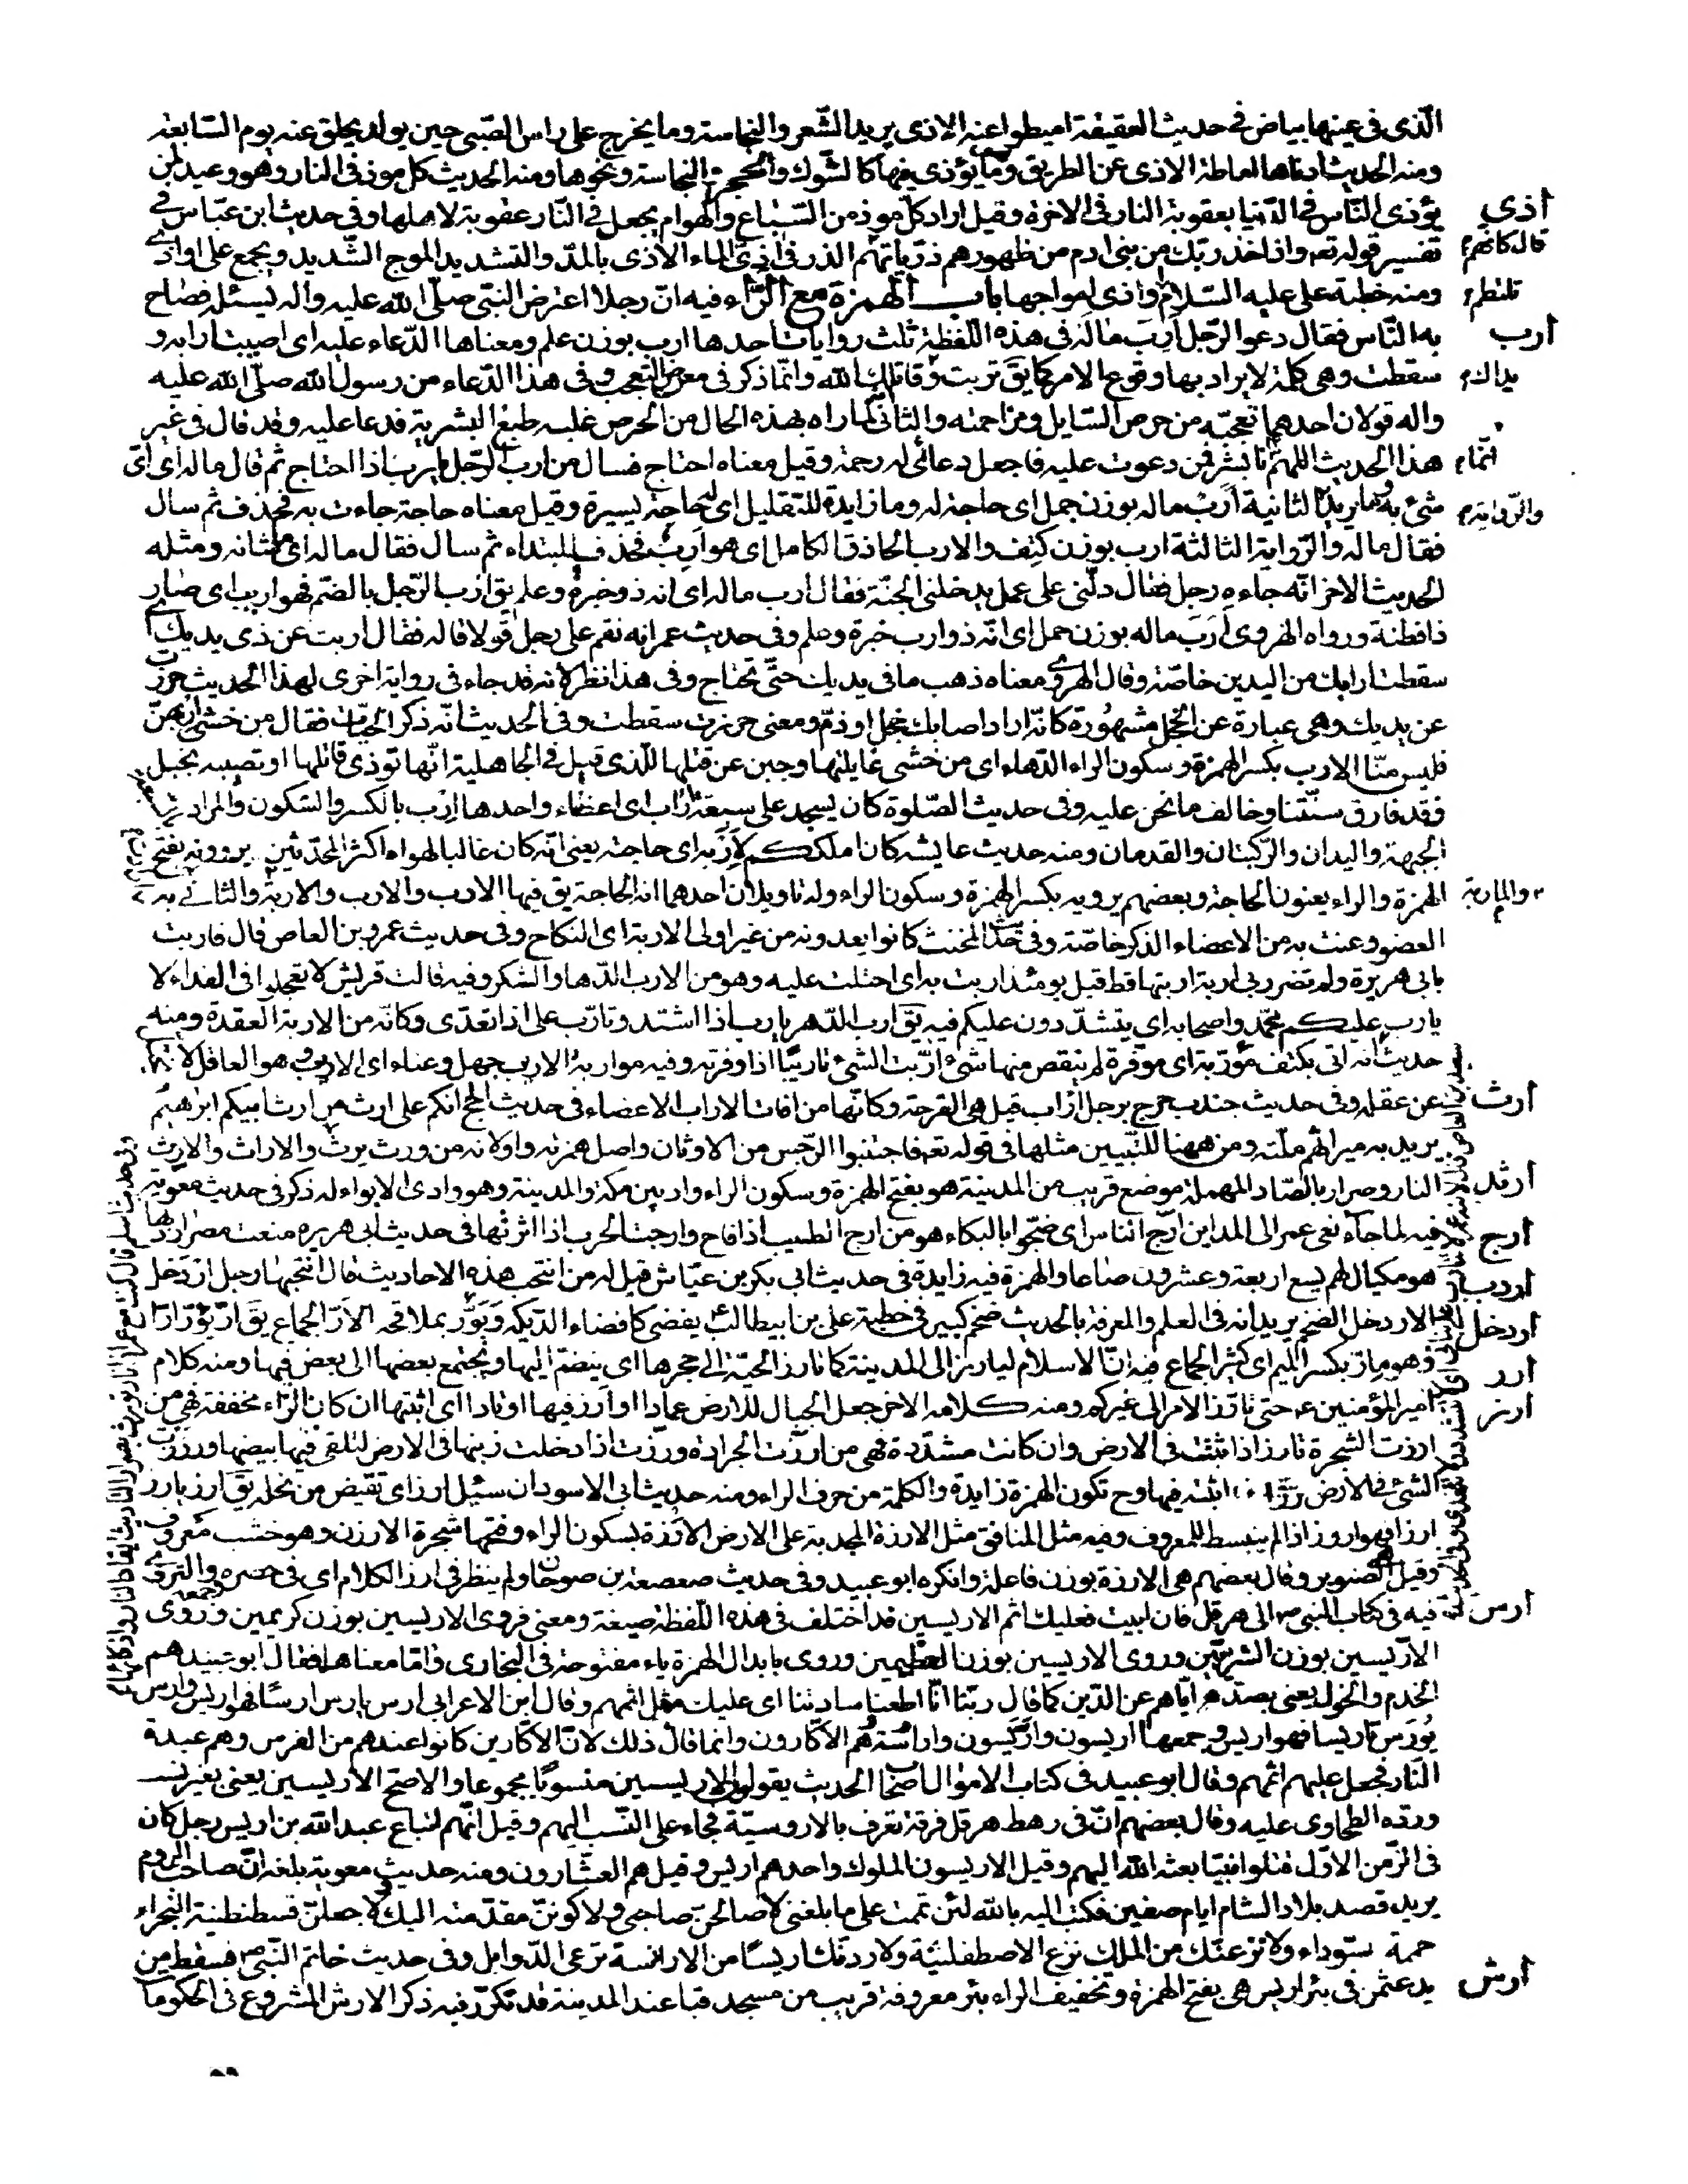 الّذى فى عينها بياض فى حديث العقيقة اميطوا عنه الاذى يريد الشّعر والنجاسة وما يخرج على راس الصّبى حين يولد يحلق عنه يوم السّابعة
ومنه الحديث ادناها اماطة الاذى عن الطريق وما يؤذى فيها كالشوك والحجر والنجاسة ونحوها ومنه الحديث كل موذ فى النار وهو وعيد لمن
اذى
يؤذى النّاس فى الدّنيا بعقوبة النار فى الاخرة وقيل اراد كلّ موذ من السّباع والهوام يجعل فى النّار عقوبة لاهلها وفى حديث ابن عبّاس فى
قال كانهم
تفسير قوله تعـ واذ اخذ ربّك من بنى ادم من ظهورهم ذرّياتهم الذر فى اذىّ الماء الاذى بالمدّ والتشديد الموج الشّديد ويجمع على اواذى
تلتطم
ومنه خطبة على عليه السّلام واذى امواجها باب الهمزة مع الرّاء فيه انّ رجلا اعترض النبّى صلّى الله عليه واله ليسئله فصاح
ارب
به النّاس فقال دعوا الرّجل ارب ماله فى هذه اللّفظة ثلث روايات احدها ارب بوزن علم ومعناها الدّعاء عليه اى اصيبت ارابه و
يداك
سقطت وهى كلمة لا يراد بها وقوع الامر كما يق تربت وقاتلك الله وانّما ذكر فى معرض التعجب وفى هذا الدّعاء من رسول الله صلّى الله عليه
واله قولان احدهما تعجّبه من حرص السّايل ومزاحمته والثانى لمّا راه بهذه الحال من الحرص غلبه طبع البشرية فدعا عليه وقد قال فى غير
انّما
هذا الحديث اللهم انا بشر فمن دعوت عليه فاجعل دعائى له رحمة وقيل معناه احتاج فسال من ارب الرّجل يارب اذا احتاج ثم قال ماله اى اىّ
والرّواية
شئ به وما يريد الثانية ارب ماله بوزن جمل اى حاجة له وما زايدة للتقليل اى له حاجة يسيرة وقيل معناه حاجة جاءت به فحذف ثم سال
فقال ماله والرّواية الثالثة ارب بوزن كتف والارب الحاذق الكامل اى هو ارب فحذف المبتداء ثم سال فقال ماله اى ما شانه ومثله
الحديث الاخر انّه جاءه رجل فقال دلّنى على عمل يدخلنى الجنّة فقال ارب ماله اى انه ذو خبرة وعلم يق ارب الرّجل بالضم فهو اريب اى صار
ذا فطنة ورواه الهروى ارب ماله بوزن حمل اى انّه ذو ارب خبرة وعلم وفى حديث عمر انه نقم على رجل قولا قاله فقال اربت عن ذى يديك اى
سقطت ارابك من اليدين خاصّة وقال الهروى معناه ذهب ما فى يديك حتّى تحتاج وفى هذا نظر لانه قد جاء فى رواية اخرى لهذا الحديث خررت
عن يديك وهى عبارة عن الخجل مشهورة كانّه اراد اصابك خجل او ذم ومعنى خررت سقطت وفى الحديث انّه ذكر الحيّات فقال من خشى اربهنّ
فليس منّا الارب بكسر الهمزة وسكون الراء الدّهاء اى من خشى غايلتها وجبن عن قتلها للّذى قيل فى الجاهلية انّها توذى قاتلها او تصيبه بخبل
فقد فارق سنّتنا وخالف ما نحن عليه وفى حديث الصّلوة كان يسجد على سبعة اراب اى اعضاء واحدها ارب بالكسر والسّكون والمراد
الجبهة واليدان والرّكبتان والقدمان ومنه حديث عايشه كان املككم لاربه اى حاجته يعنى انّه كان غالبا لهواه اكثر المحدّثين يروونه بفتح
والماربة
الهمزة والراء يعنون الحاجة وبعضهم يرويه بكسر الهمزة وسكون الراء وله تاويلان احدهما انه الحاجة يق فيها الارب والارب والاربة والثانى
العضو وعنت به من الاعضاء الذكر خاصّة وفى حديث المخنث كانوا يعدونه من غير اولى الاربة اى النكاح وفى حديث عمرو بن العاص قال فاربت
بابى هريرة ولم تضرر بى اربة اربتها قط قبل يومئذ اربت به اى احتلت عليه وهو من الارب الدّهاء والنكر وفيه قالت قريش لا تعجلوا فى الفداء لا
يارب عليكم محمّد واصحابه اى يتشدّدون عليكم فيه يق ارب الدّهر يارب اذا اشتد وتارّب على اذا تعدّى وكانّه من الاربة العقدة ومنه
حديث انه اتى بكتف مؤرّبة اى موفرة لم ينقص منها شئ ارّبت الشئ تاريبا اذا وفرته وفيه مواربة الاريب جهل وعناء اى الاريب وهو العاقل لا
ارث
عن عقله وفى حديث جندب خرج برجل اراب قيل هى القرحة وكانّها من افات الاراب الاعضاء فى حديث الحج انكم على ارث من ارث ابيكم ابرهيم
يريد به ميراثهم ملّته ومن ههنا للتّبيين مثلها فى قوله تعـ فاجتنبوا الرّجس من الاوثان واصل همزته واو لانه من ورث يرث والاراث والارث
ارثد
النار وصرار بالصّاد المهملة موضع قريب من المدينة هو بفتح الهمزة وسكون الراء واد بين مكة والمدينة وهو وادى الابواء له ذكر فى حديث معوية
ارج
فيه لما جاء نعى عمر الى المداين ارّج الناس اى ضجّوا بالبكاء هو من ارج الطيب اذا فاح وارجت الحرب اذا اثرتها فى حديث ابى هريره منعت مصر اردبها
اردب
هو مكيال لهم يسع اربعة وعشرون صاعا والهمزة فيه زايدة فى حديث ابى بكر بن عيّاش قيل له من انتخب هذه الاحاديث قال انتخبها رجل اردخل
اردخل
الاردخل الضخم يريد انه فى العلم والمعرفة بالحديث ضخم كبير فى خطبة على بن ابيطالب يفضى كافضاء الدّيكة ويؤر بملاقحه الارّ الجماع يق ارّ يؤرّ ارّا
ارر
وهو مئرّ بكسر الميم اى كثير الجماع فيه انّ الاسلام ليارز الى المدينة كما تارز الحيّة الى جحرها اى ينضمّ اليها ويجتمع بعضها الى بعض فيها ومنه كلام
ارز
امير المؤمنين حتى تارز الامر الى غيركم ومنه كلامه الاخر جعل الجبال للارض عمادا وارز فيها اوتادا اى اثبتها ان كان الرّاء مخففة فهى من
ارزت الشجرة تارز اذا ثبتت فى الارض وان كانت مشدّدة فهى من ارزّت الجرادة ورزّت اذا دخلت ذنبها فى الارض لتلقى فيها بيضها ورززت
الشئ فى الارض رزّا اثبتّه فيها وح تكون الهمزة زايدة والكلمة من حرف الراء ومنه حديث ابى الاسود ان سئل ارز اى تقبّض من بخله يق ارز يارز
ارزا فهو اروز اذا لم ينبسط للمعروف وفيه مثل المنافق مثل الارزة المجدبة على الارض الارزة بسكون الراء وفتحها شجرة الارزن وهو خشب معروف
وقيل هو الصنوبر وقال بعضهم هى الارزة بوزن فاعلة وانكره ابو عبيد وفى حديث صعصعة بن صوحان ولم ينظر فى ارز الكلام اى فى حصره
ارس
فيه فى كتاب النبى الى هرقل فان ابيت فعليك اثم الاريسين قد اختلف فى هذه اللّفظة صيغة ومعنى فروى الاريسين بوزن كريمين وروى
الارّيسين بوزن الشرّيبين وروى الاريسين بوزن العظيمين وروى بابدال الهمزة ياء مفتوحة فى البخارى وامّا معناها فقال ابو عبيد هم
الخدم والخول يعنى بصدّهم ايّاهم عن الدّين كما قال ربّنا انّا اطعنا سادتنا اى عليك مثل اثمهم وقال ابن الاعرابى ارس يارس ارسا فهو اريس وارس
يورّس تاريسا فهو ارّيس وجمعها اريسون وارّيسون وارارسة وهم الاكارون وانما قال ذلك لانّ الاكّارين كانوا عندهم من الفرس وهم عبدة
النّار فجعل عليهم اثمهم وقال ابو عبيد فى كتاب الاموال اصحاب الحديث يقولون الاريسيين منسوبا مجموعا والاصح الاريسين يعنى بغير نسب
وردّه الطحاوى عليه وقال بعضهم انّ فى رهط هرقل فرقة تعرف بالاروسيّة فجاء على النّسب اليهم وقيل انّهم اتباع عبد الله بن اريس رجل كان
فى الزّمن الاوّل قتلوا نبيّا بعثه الله اليهم وقيل الاريسون الملوك واحدهم اريس وقيل هم العشّارون ومنه حديث معوية بلغه انّ صاحب الروم
يريد قصد بلاد الشام ايام صفين فكتب اليه بالله لئن تممت على ما بلغنى لاصالحنّ صاحبى ولاكوننّ مقدّمته اليك ولاجعلنّ قسطنطنية البخراء
حممة سوداء ولانزعنّك من الملك نزع الاصطفلينة ولاردنّك اريسا من الارارسة ترعى الدّوابل وفى حديث خاتم النّبى فسقط من
ارش
يد عثمن فى بئر اريس هى بفتح الهمزة وتخفيف الراء بئر معروفة قريب من مسجد قبا عند المدينة قد تكرّر فيه ذكر الارش المشروع فى الحكومات